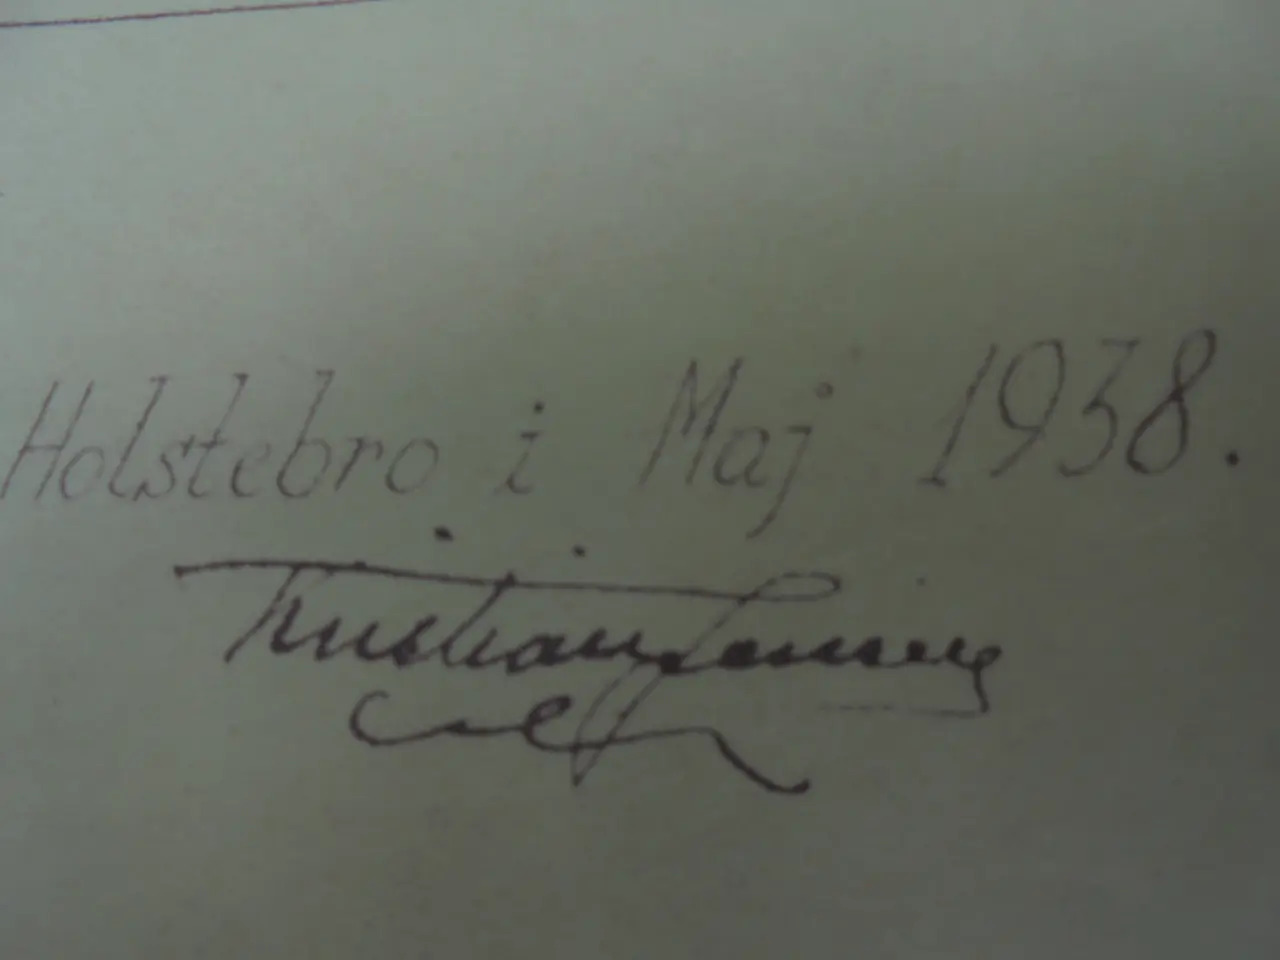 Holstebro i Maj 1938.
Kristian